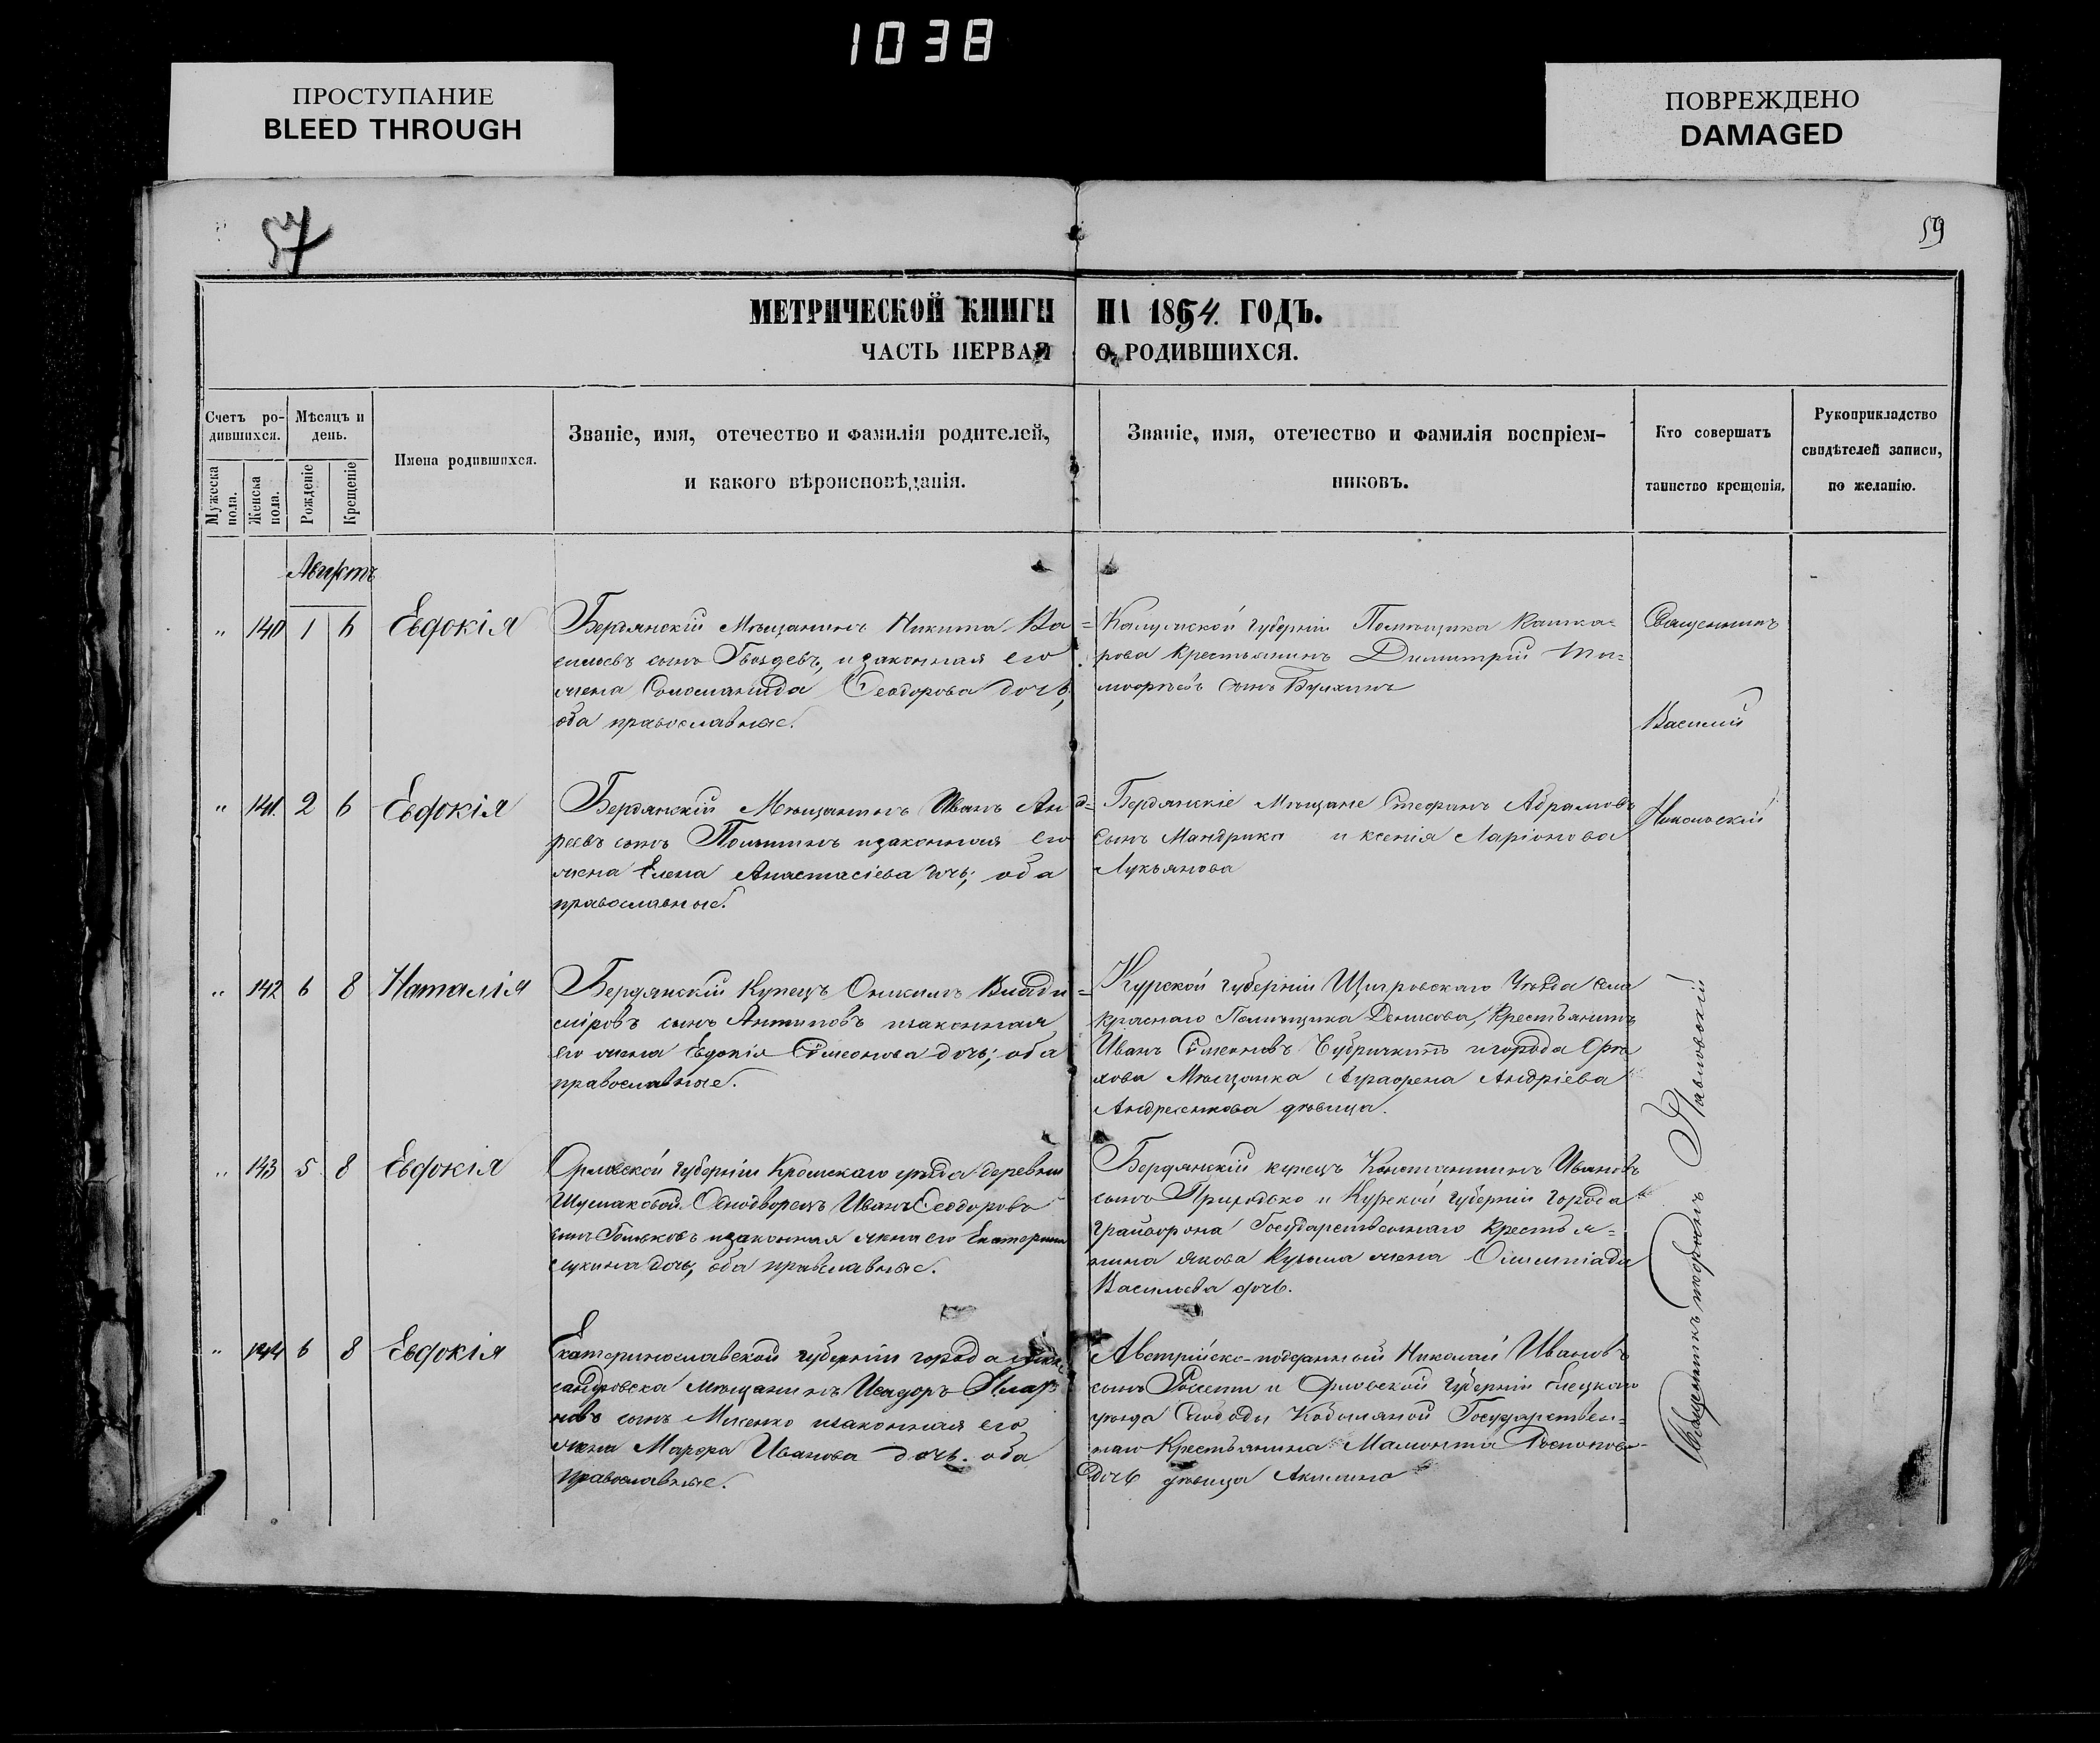 1038
ПРОСТУПАНИЕ
BLEED THROUGH
ПОВРЕЖДЕНО
DAMAGED
57
59
МЕТРИЧЕСКОЙ КНИГИ НА 1854 ГОДЪ.
ЧАСТЬ ПЕРВАЯ О РОДИВШИХСЯ.
Счетъ ро-
дившихся.
Мужеска пола.
Женска пола.
Мѣсяцъ и
день.
Рожденіе
Крещеніе
Имена родившихся.
Званіе, имя, отечество и фамилія родителей,
и какого вѣроисповѣданія.
Званіе, имя, отечество и фамилія воспріем-
никовъ.
Кто совершатъ
таинство крещенія.
Рукоприкладство
свидѣтелей записи,
по желанію.
Августъ
" 140 1 6 Евфокія
Бердянскій Мѣщанинъ Никита Ва=
сильевъ сынъ Гвоздевъ, изаконная его
жена Соломанида Ѳеодорова дочь,
оба православные.
губерніи Помѣщика Кашка=
рова Крестьянинъ Димитрій Ти=
моѳеевъ сынъ
Священникъ
Василій
Никольскій
" 141. 2 6 Евфокія
Бердянскій Мѣщанинъ Иванъ Анд=
реевъ сынъ изаконная его
жена Елена Анастасіева дочь; оба
православные.
Бердянскіе Мѣщане Стефанъ Абрамовъ
сынъ Мандрика и ксенія Ларіонова
Лукьянова
" 142 6 8 Наталія
Бердянскій Купецъ Онисимъ Влади=
міровъ сынъ Антиповъ изаконная
его жена Евдокія Сѵмеонова дочь; оба
православные.
Курской губерніи Щигровскаго Уѣзда села
краснаго Помѣщика Денисова, Крестьянинъ
Иванъ Сѵмеоновъ игорода Орѣ
хова Мѣщанка Аграфена Андріева
Андреенкова дѣвица.
" 143 5 8 Евфокія
Орловской губерніи Кромскаго уѣзда деревни
Шумаковой Однодворецъ Иванъ Ѳеодоровъ
сынъ изаконная жена его Екатерина
Лукина дочь, оба православные.
Бердянскій купецъ Константинъ Ивановъ
сынъ Приходько и Курской губерніи города
Грайворона Государственнаго Крестья=
нина якова Кузьма жена Олимпіада
Васильева дочь.
" 144 6 8 Евфокія
Екатеринославской губерніи города Алек
сандровска мѣщанинъ Исидоръ
сынъ изаконная его
жена Марфа Иванова дочь. оба
православные.
Австрійско-подданный Николай Ивановъ
сынъ и Орловской губерніи Елецкаго
уѣзда Слободы Государствен=
наго Крестьянина Мамонта
дочь дѣвица Акилина
Священникъ Павловскій